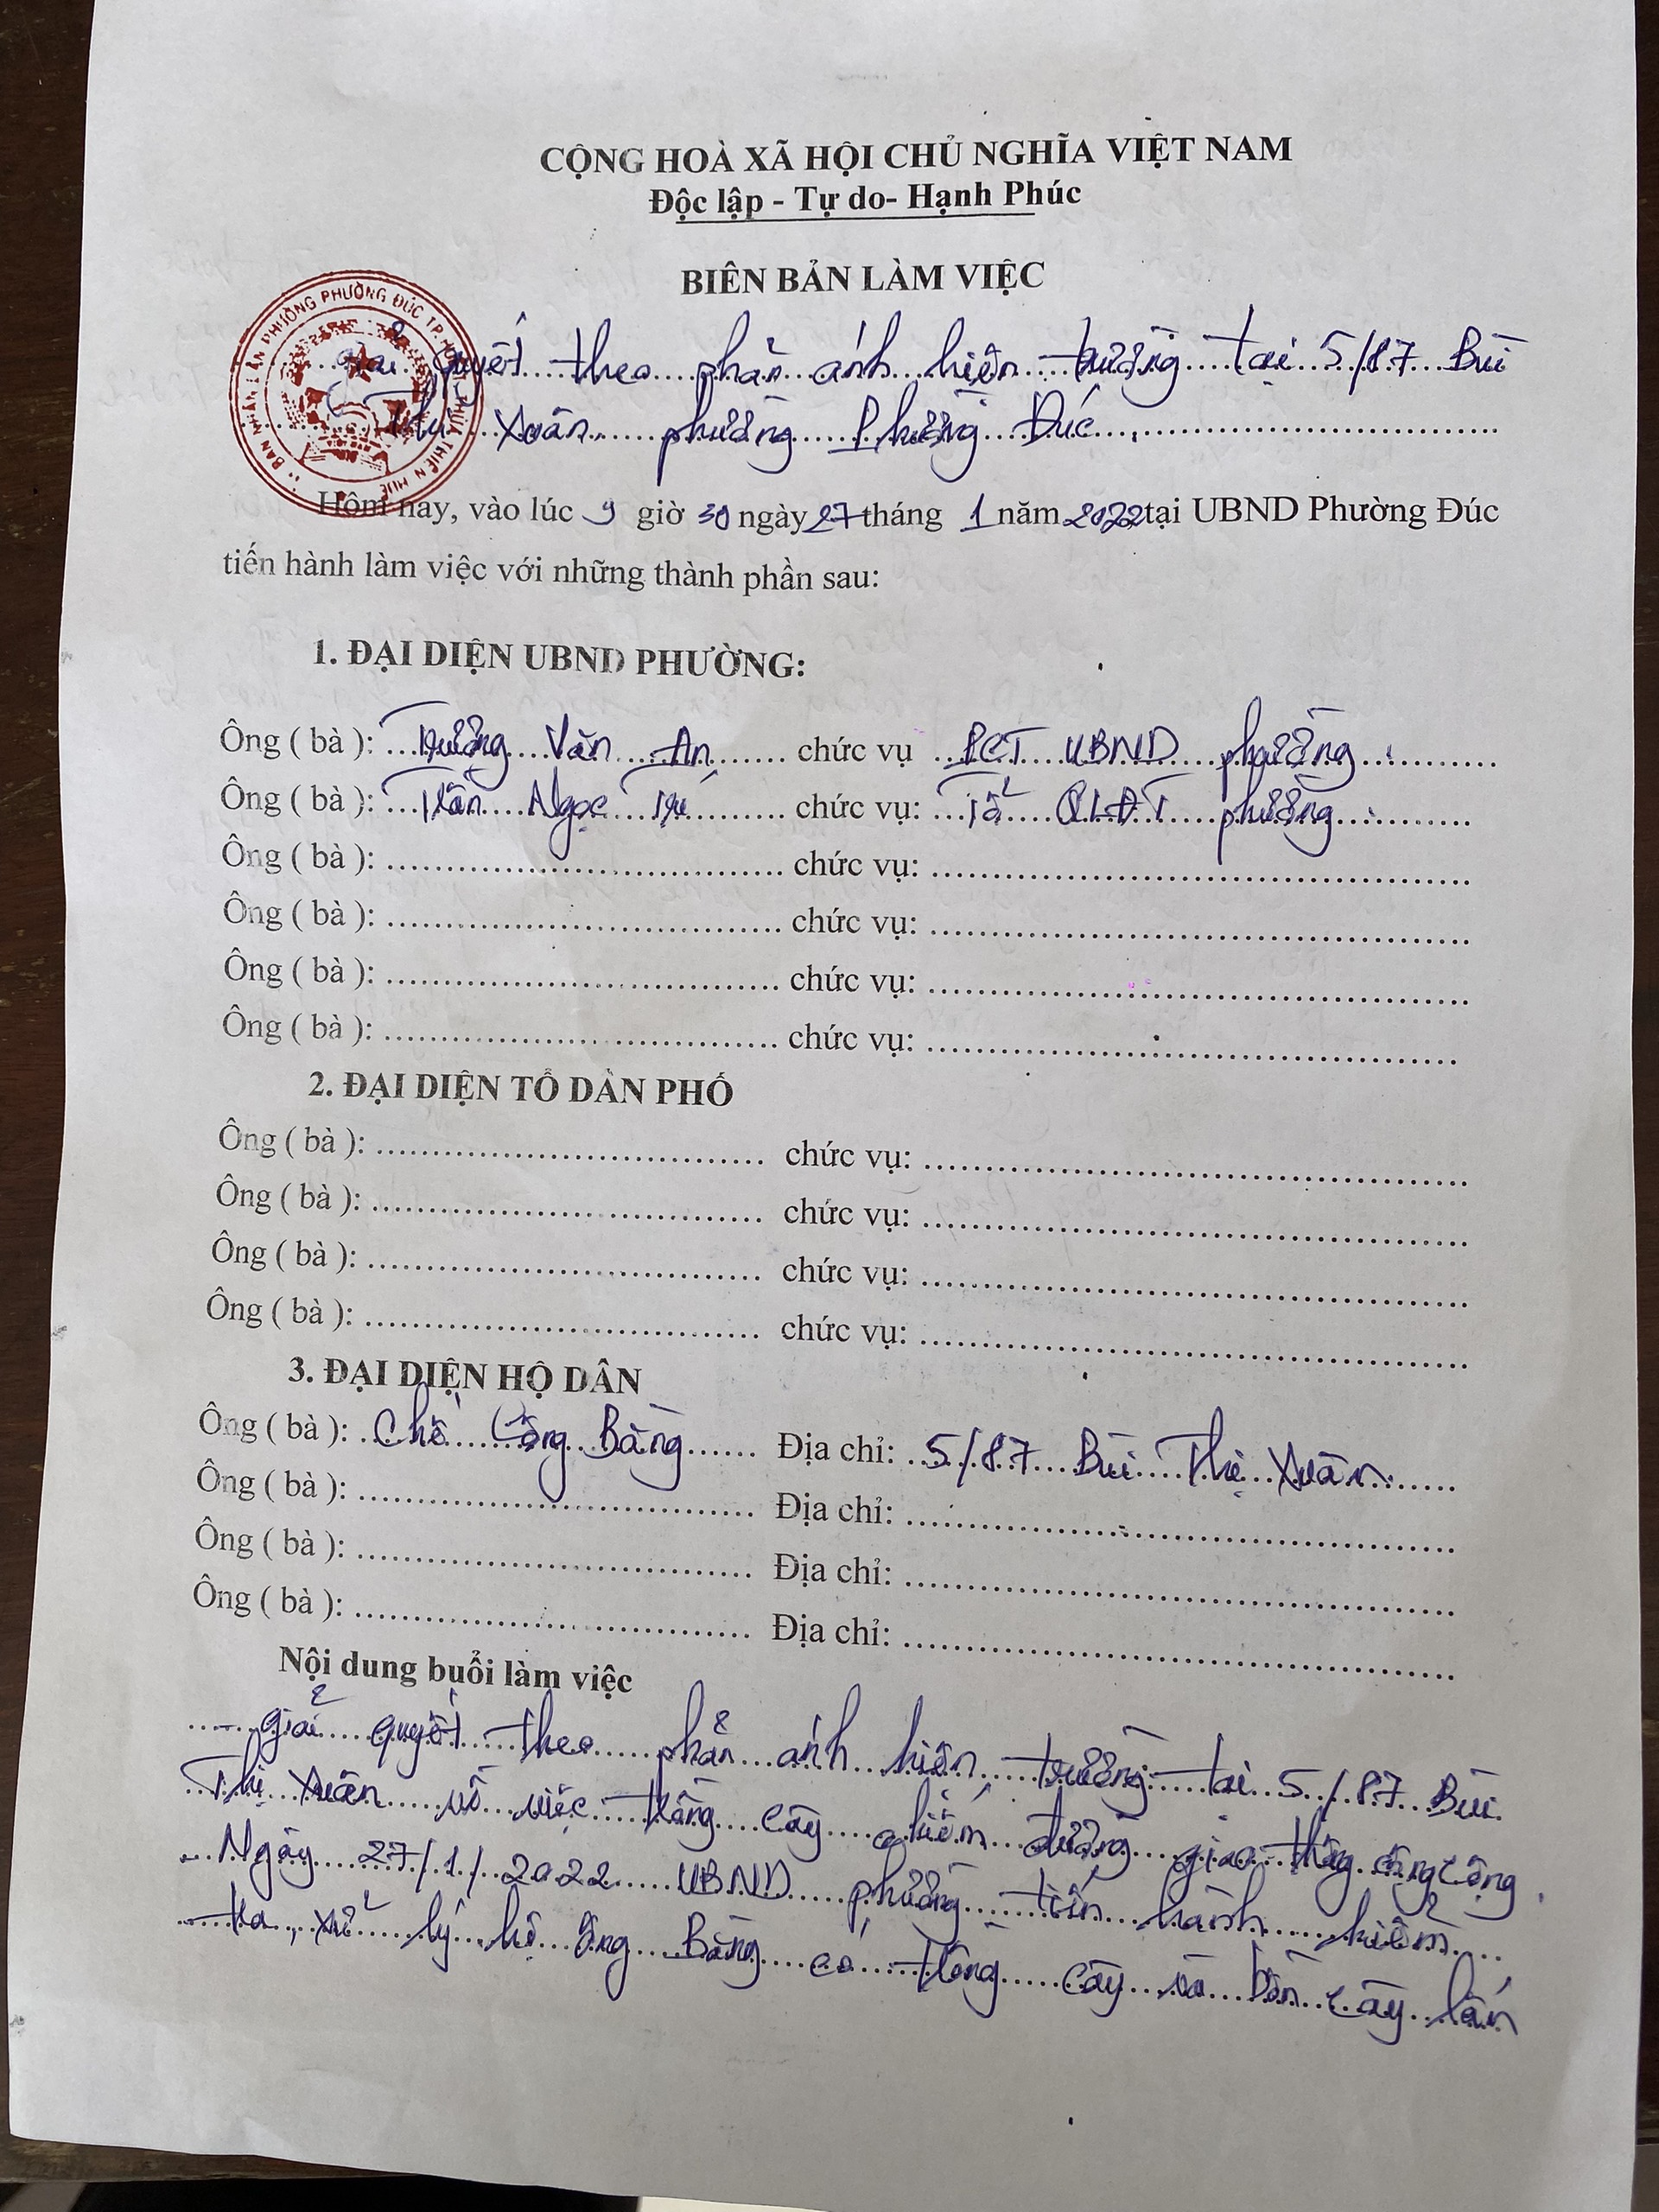 CỘNG HOÀ XÃ HỘI CHỦ NGHĨA VIỆT NAM
Độc lập - Tự do- Hạnh Phúc
BIÊN BẢN LÀM VIỆC
giải quyết theo phản ánh hiện trường tại 5/87 Bùi
Thị Xuân, phường Phường Đúc
Hôm nay, vào lúc 9 giờ 30 ngày 27 tháng 1 năm 2022 tại UBND Phường Đúc
tiến hành làm việc với những thành phần sau:
1. ĐẠI DIỆN UBND PHƯỜNG:
Ông ( bà ): Trương Văn An chức vụ PCT UBND phường
Ông ( bà ): Trần Ngọc Tú chức vụ: Tổ QLĐT phường
Ông ( bà ): chức vụ:
Ông ( bà ): chức vụ:
Ông ( bà ): chức vụ:
Ông ( bà ): chức vụ:
2. ĐẠI DIỆN TỔ DÂN PHỐ
Ông ( bà ): chức vụ:
Ông ( bà ): chức vụ:
Ông ( bà ): chức vụ:
Ông ( bà ): chức vụ:
3. ĐẠI DIỆN HỘ DÂN
Ông ( bà ): Công Bằng Địa chỉ: 5/87 Bùi Thị Xuân
Ông ( bà ): Địa chỉ:
Ông ( bà ): Địa chỉ:
Ông ( bà ): Địa chỉ:
Nội dung buổi làm việc
- giải quyết theo phản ánh hiện trường tại 5/87 Bùi
Thị Xuân về việc trồng cây chiếm đường giao thông công cộng
- Ngày 27/1/2022 UBND phường tiến hành kiểm
tra, xử lý hộ ông Bằng có trồng cây và bồn cây lấn